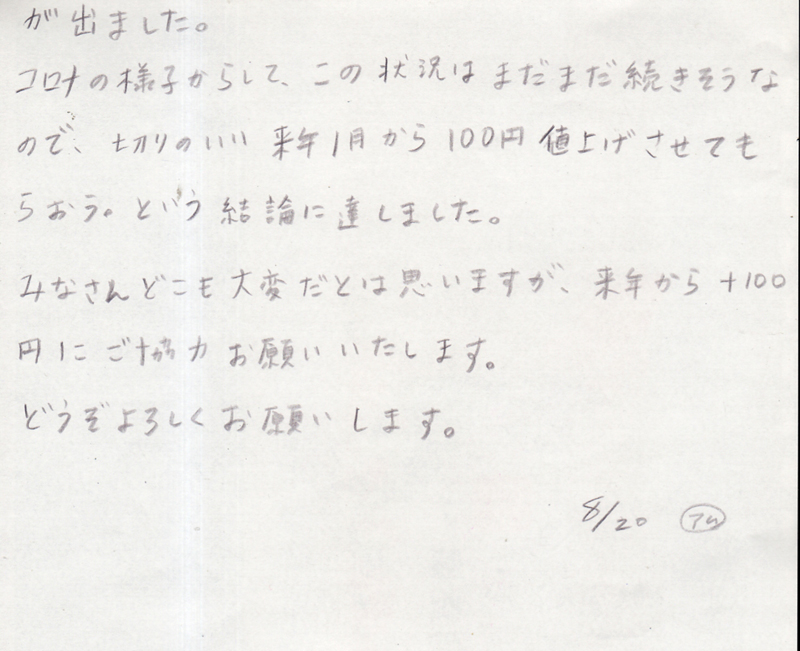 が出ました。
コロナの様子からして、この状況はまだまだ続きそうな
ので、切りのいい来年1月から100円値上げさせても
らおう。という結論に達しました。
みなさんどこも大変だとは思いますが、来年から+100
円にご協力お願いいたします。
どうぞよろしくお願いします。
8/20